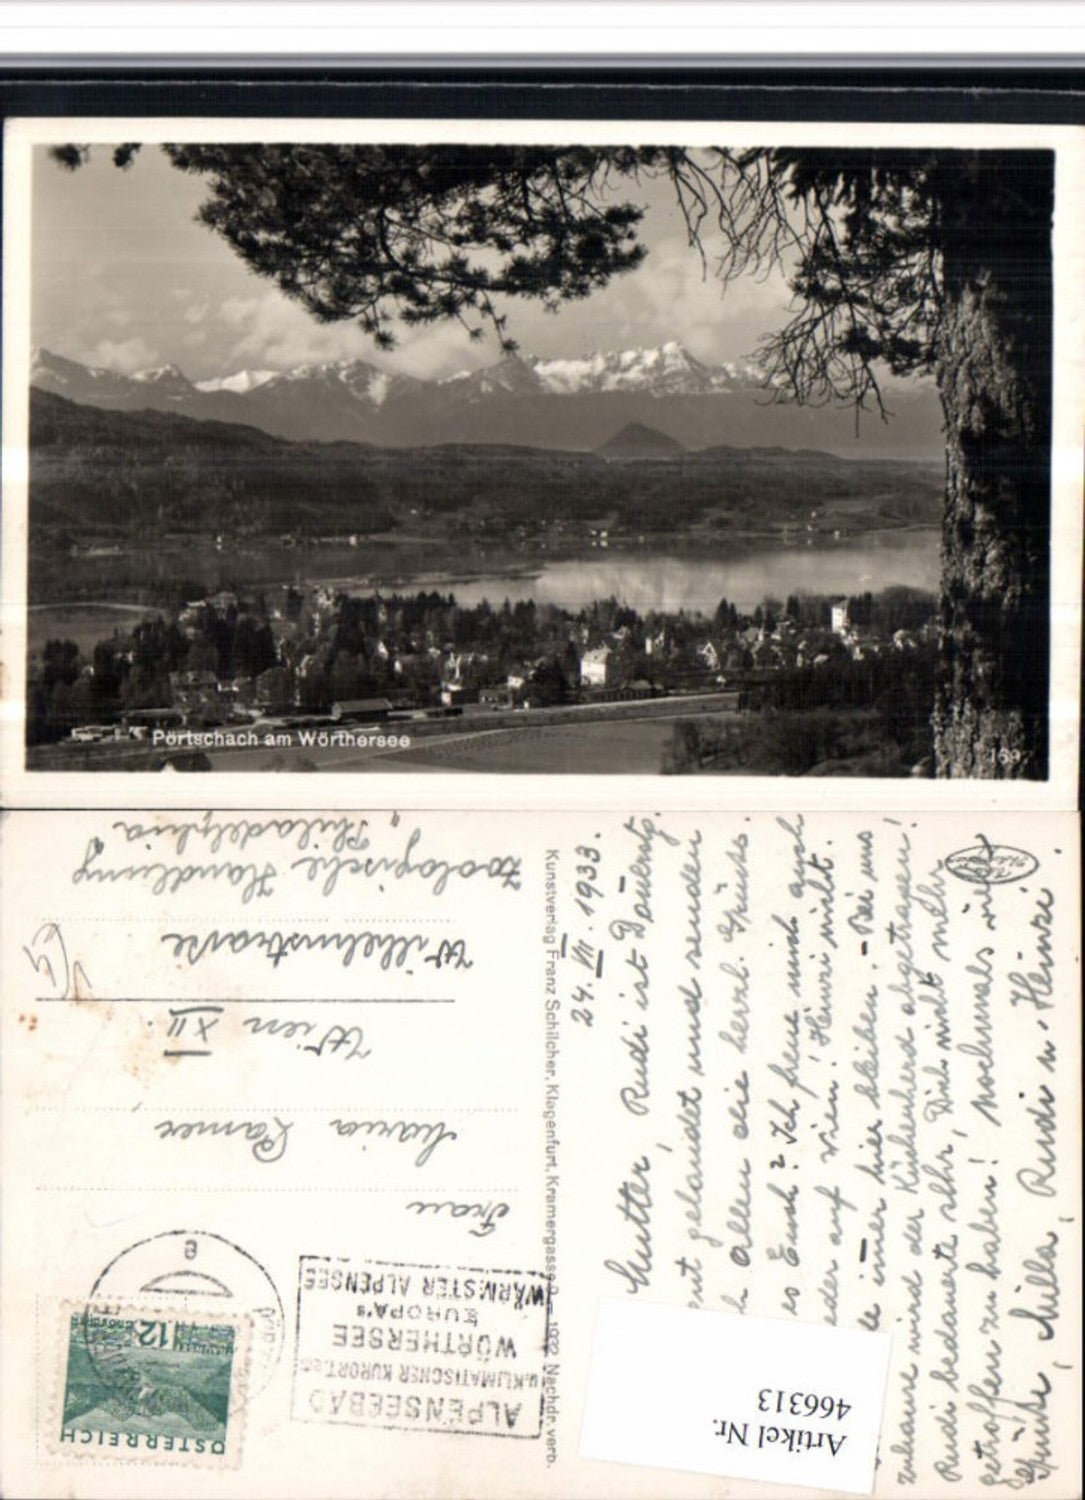 Pörtschach am Wörthersee
169
24. VII. 1933.
Mutter, Rudi ist Dauernd
gut gelandet und senden
Allen die herzl. Grüsse.
es Euch? Ich freue mich auch
wieder auf Wien! Heinzi nicht.
immer hier bleiben. - Bei uns
zuhause wird der Küchenherd abgetragen!
Rudi bedauerte sehr, Dich nicht mehr
getroffen zu haben! Nochmals viele
Grüsse, Milla, Rudi u. Heinzi.
Kunstverlag Franz Schilcher, Klagenfurt, Kramergasse 9 — 1932 Nachdr. verb.
ÖSTERREICH
12
ALPENSEEBAD
u. KLIMATISCHER KURORT am
WÖRTHERSEE
EUROPA's
WÄRMSTER ALPENSEE
e
Frau
Maria Ramer
Wien XII.
Wilhelmstraße
Zoologische Handlung
„Philadelphia"
Artikel Nr.
466313